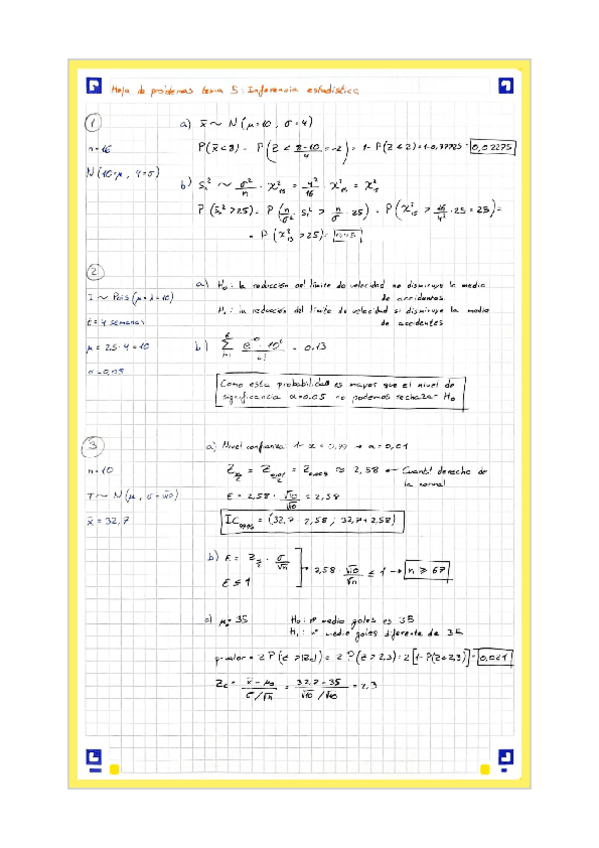 Hoja de problemas tema 5: Inferencia estadística
1
n=16
N(10=μ, 4=σ)
a) x̄ ~ N(μ=10, σ=4)
P(x̄<8) = P(Z < (8-10)/4 = -2) = 1-P(Z≤2)=1-0,97725=0,02275
b) Sₙ² ~ σ²/n · χ²₁₅ = 4²/16 · χ²₁₅ = χ²₁₅
P(Sₙ²>25) = P(n/σ² · Sₙ² > n/σ · 25) = P(χ²₁₅ > 16/4² · 25 = 25) =
= P(χ²₁₅ >25)=
2
I ~ Pois(μ=λ=10)
t= 4 semanas
μ = 2.5·4=10
α=0,05
a) H₀: la reducción del límite de velocidad no disminuye la media
de accidentes.
H₁: la reducción del límite de velocidad si disminuye la media
de accidentes
b) = 0.13
Como esta probabilidad es mayor que el nivel de
significancia α=0.05 no podemos rechazar H₀
3
n=10
T ~ N(μ, σ=√10)
x̄ = 32,7
a) Nivel confianza 1-α = 0,99 → α=0,01
≈ 2,58 ← Cuantil derecho de
la normal
E = 2,58 · √10/√10 = 2,58
= (32,7 - 2,58 ; 32,7+2,58)
b) E = Z · σ/√n
→ 2,58 · √10/√n ≤ 1 → n ≥ 67
E ≤ 1
c) μ₀ = 35
H₀: nº medio goles es 35
H₁: nº medio goles diferente de 35
p-valor = 2P(Z>|Zc|) = 2P(Z>2,3)=2[1-P(Z≤2,3)]=0,021
Zc = (x̄ - μ₀)/(σ/√n) = (32.7-35)/(√10/√10) = -2,3